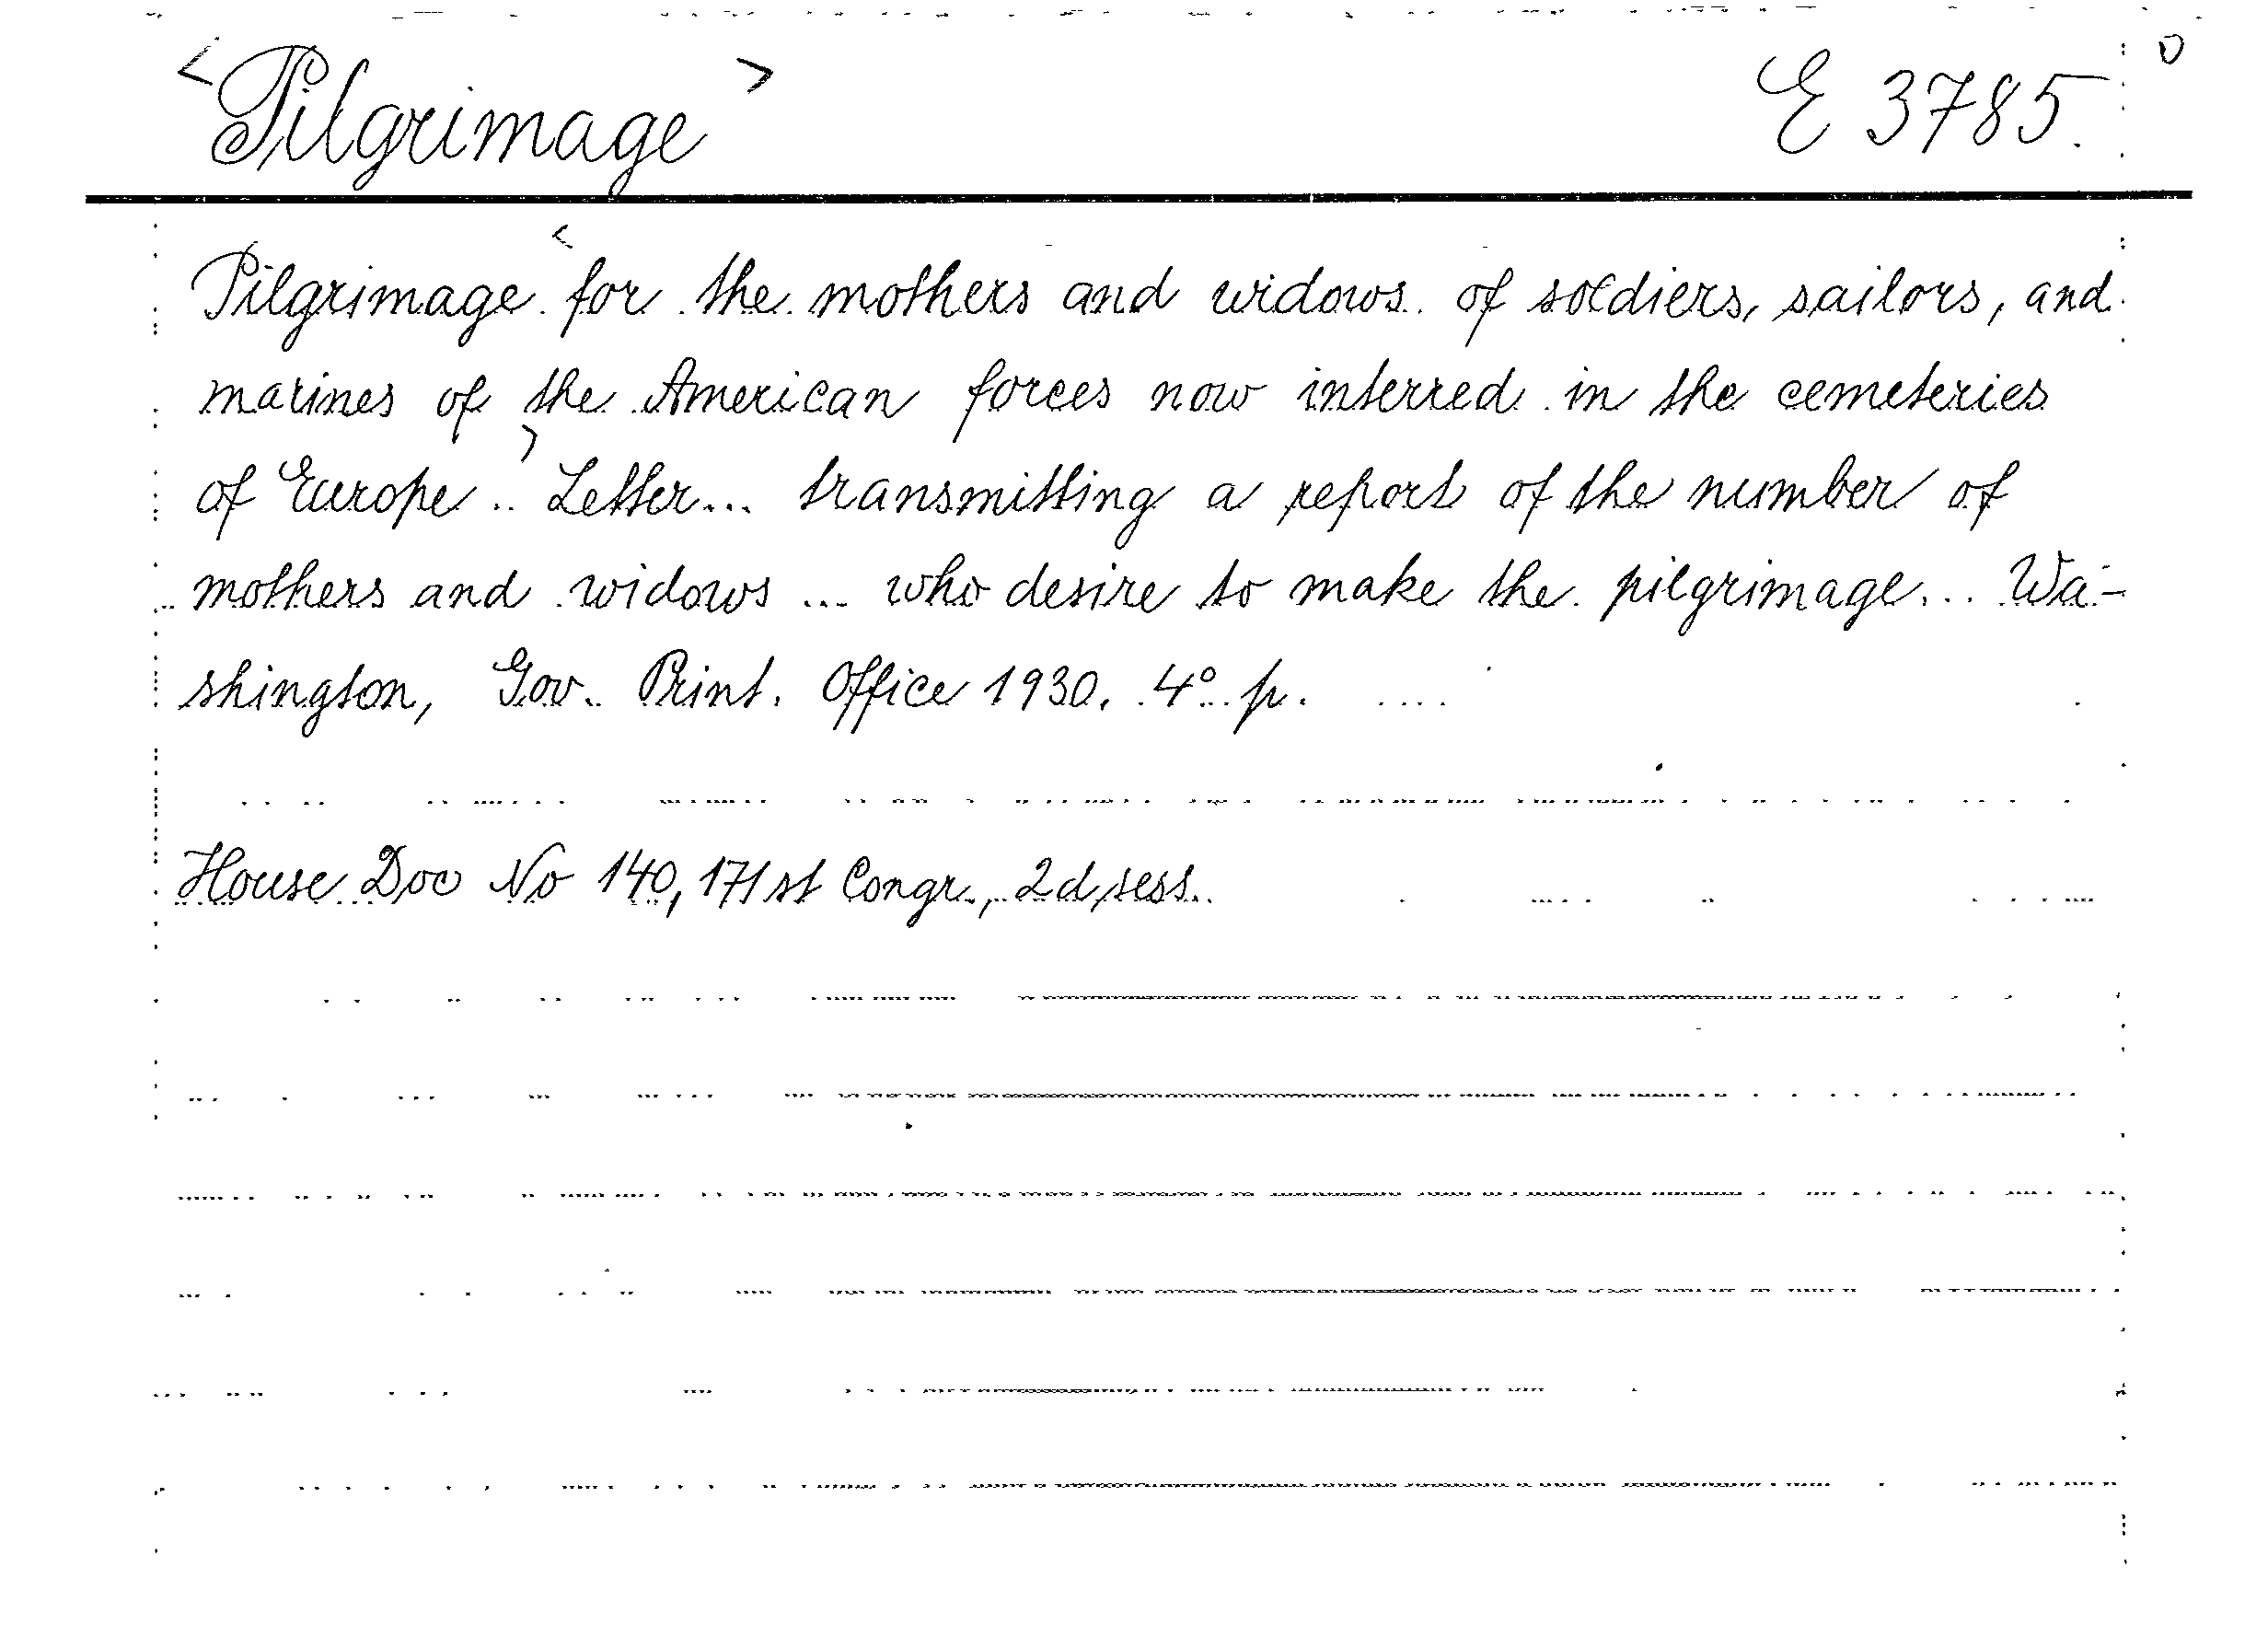 <Pilgrimage> E 3785. 0
Pilgrimage < for the mothers and widows of soldiers, sailors, and
marines of the American forces now interred in the cemeteries
of Europe > .. Letter... transmitting a report of the number of
mothers and widows ... who desire to make the pilgrimage... Wa-
shington, Gov. Print. Office 1930. 4° p.
House Doc No 140, 171st Congr., 2d, sess.